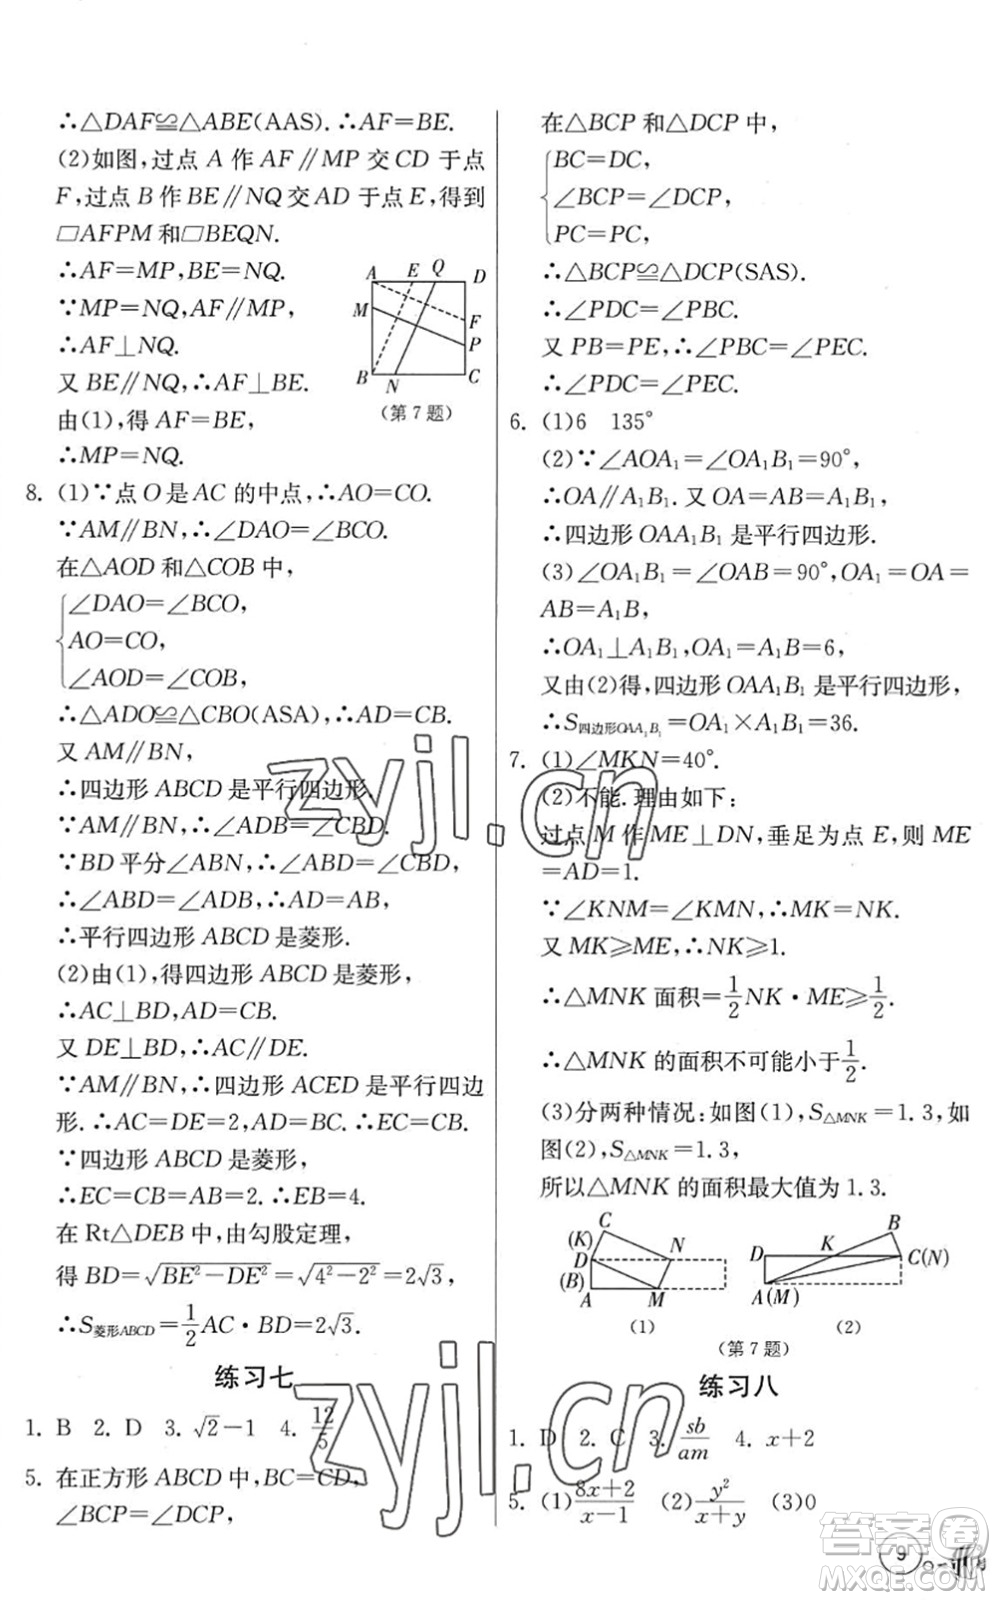 ∴△DAF≌△ABE(AAS).∴AF=BE.
(2)如图,过点 A 作 AF∥MP 交 CD 于点
F,过点 B 作 BE∥NQ 交 AD 于点 E,得到
▱AFPM 和▱BEQN.
∴AF=MP,BE=NQ.
∵MP=NQ,AF∥MP,
∴AF⊥NQ.
又 BE∥NQ,∴AF⊥BE.
由(1),得 AF=BE,
∴MP=NQ.
A E Q D
M
F
P
B N C
(第 7 题)
8. (1)∵点 O 是 AC 的中点,∴AO=CO.
∵AM∥BN,∴∠DAO=∠BCO.
在△AOD 和△COB 中,
∠DAO=∠BCO,
AO=CO,
∠AOD=∠COB,
∴△ADO≌△CBO(ASA),∴AD=CB.
又 AM∥BN,
∴四边形 ABCD 是平行四边形.
∵AM∥BN,∴∠ADB=∠CBD.
∵BD 平分∠ABN,∴∠ABD=∠CBD,
∴∠ABD=∠ADB,∴AD=AB,
∴平行四边形 ABCD 是菱形.
(2)由(1),得四边形 ABCD 是菱形,
∴AC⊥BD,AD=CB.
又 DE⊥BD,∴AC∥DE.
∵AM∥BN,∴四边形 ACED 是平行四边
形.∴AC=DE=2,AD=BC.∴EC=CB.
∵四边形 ABCD 是菱形,
∴EC=CB=AB=2.∴EB=4.
在 Rt△DEB 中,由勾股定理,
得 BD=√(BE²-DE²)=√(4²-2²)=2√3,
∴S菱形ABCD=1/2 AC·BD=2√3.
练习七
1. B 2. D 3. √2-1 4. 12/5
5. 在正方形 ABCD 中,BC=CD,
∠BCP=∠DCP,
在△BCP 和△DCP 中,
BC=DC,
∠BCP=∠DCP,
PC=PC,
∴△BCP≌△DCP(SAS).
∴∠PDC=∠PBC.
又 PB=PE,∴∠PBC=∠PEC.
∴∠PDC=∠PEC.
6. (1)6 135°
(2)∵∠AOA₁=∠OA₁B₁=90°,
∴OA∥A₁B₁.又 OA=AB=A₁B₁,
∴四边形 OAA₁B₁ 是平行四边形.
(3)∠OA₁B₁=∠OAB=90°,OA₁=OA=
AB=A₁B,
∴OA₁⊥A₁B₁,OA₁=A₁B=6,
又由(2)得,四边形 OAA₁B₁ 是平行四边形,
∴S四边形OAA₁B₁=OA₁×A₁B₁=36.
7. (1)∠MKN=40°.
(2)不能.理由如下:
过点 M 作 ME⊥DN,垂足为点 E,则 ME
=AD=1.
∵∠KNM=∠KMN,∴MK=NK.
又 MK≥ME,∴NK≥1.
∴△MNK 面积=1/2 NK·ME≥1/2.
∴△MNK 的面积不可能小于1/2.
(3)分两种情况:如图(1),S△MNK=1.3,如
图(2),S△MNK=1.3,
所以△MNK 的面积最大值为 1.3.
C
(K) N
D
(B)
A M
(1)
B
D K C(N)
A(M)
(2)
(第 7 题)
练习八
1. D 2. C 3. sb/am 4. x+2
5. (1)(8x+2)/(x-1) (2)y²/(x+y) (3)0
9
zyjl.cn
zyjl.cn
答案卷